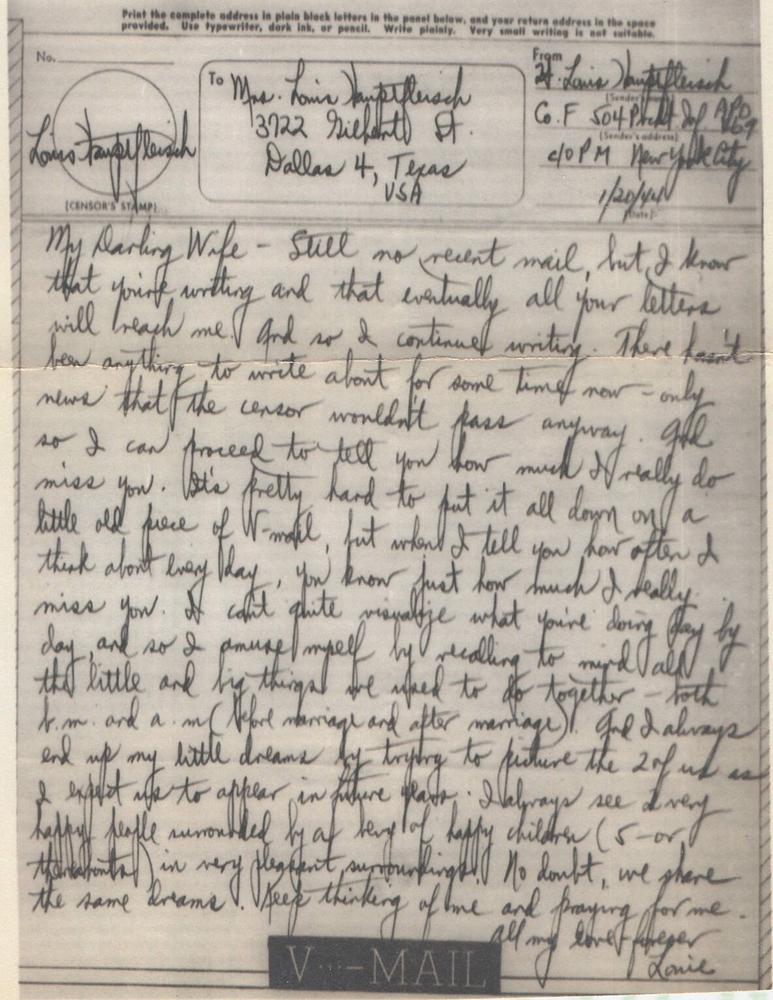 Print the complete address in plain block letters in the panel below, and your return address in the space
provided. Use typewriter, dark ink, or pencil. Write plainly. Very small writing is not suitable.
No.
To
From
Mrs. Louis Hauptfleisch
3722 Gilbert St.
Dallas 4, Texas
USA
Lt. Louis Hauptfleisch
(Sender's
Co. F 504 Prcht Inf APO 469
(Sender's address)
c/o P M New York City
1/20/44
(Date)
Louis Hauptfleisch
(CENSOR'S STAMP)
My Darling Wife - Still no recent mail, but I know
that you're writing and that eventually all your letters
will reach me. And so I continue writing. There hasn't
been anything to write about for some time now - only
news that the censor wouldn't pass anyway. And
so I can proceed to tell you how much I really do
miss you. It's pretty hard to put it all down on a
little old piece of V-mail, but when I tell you how often I
think about every day, you know just how much I really
miss you. I can't quite visualize what you're doing day by
day, and so I amuse myself by recalling to mind all
the little and big things we used to do together - both
b.m. and a.m (before marriage and after marriage). And I always
end up my little dreams by trying to picture the 2 of us as
I expect us to appear in future years. I always see 2 very
happy people surrounded by a bevy of happy children (5 - or
thereabouts) in very pleasant surroundings. No doubt, we share
the same dreams. Keep thinking of me and praying for me.
All my love forever
Louie
V···-MAIL